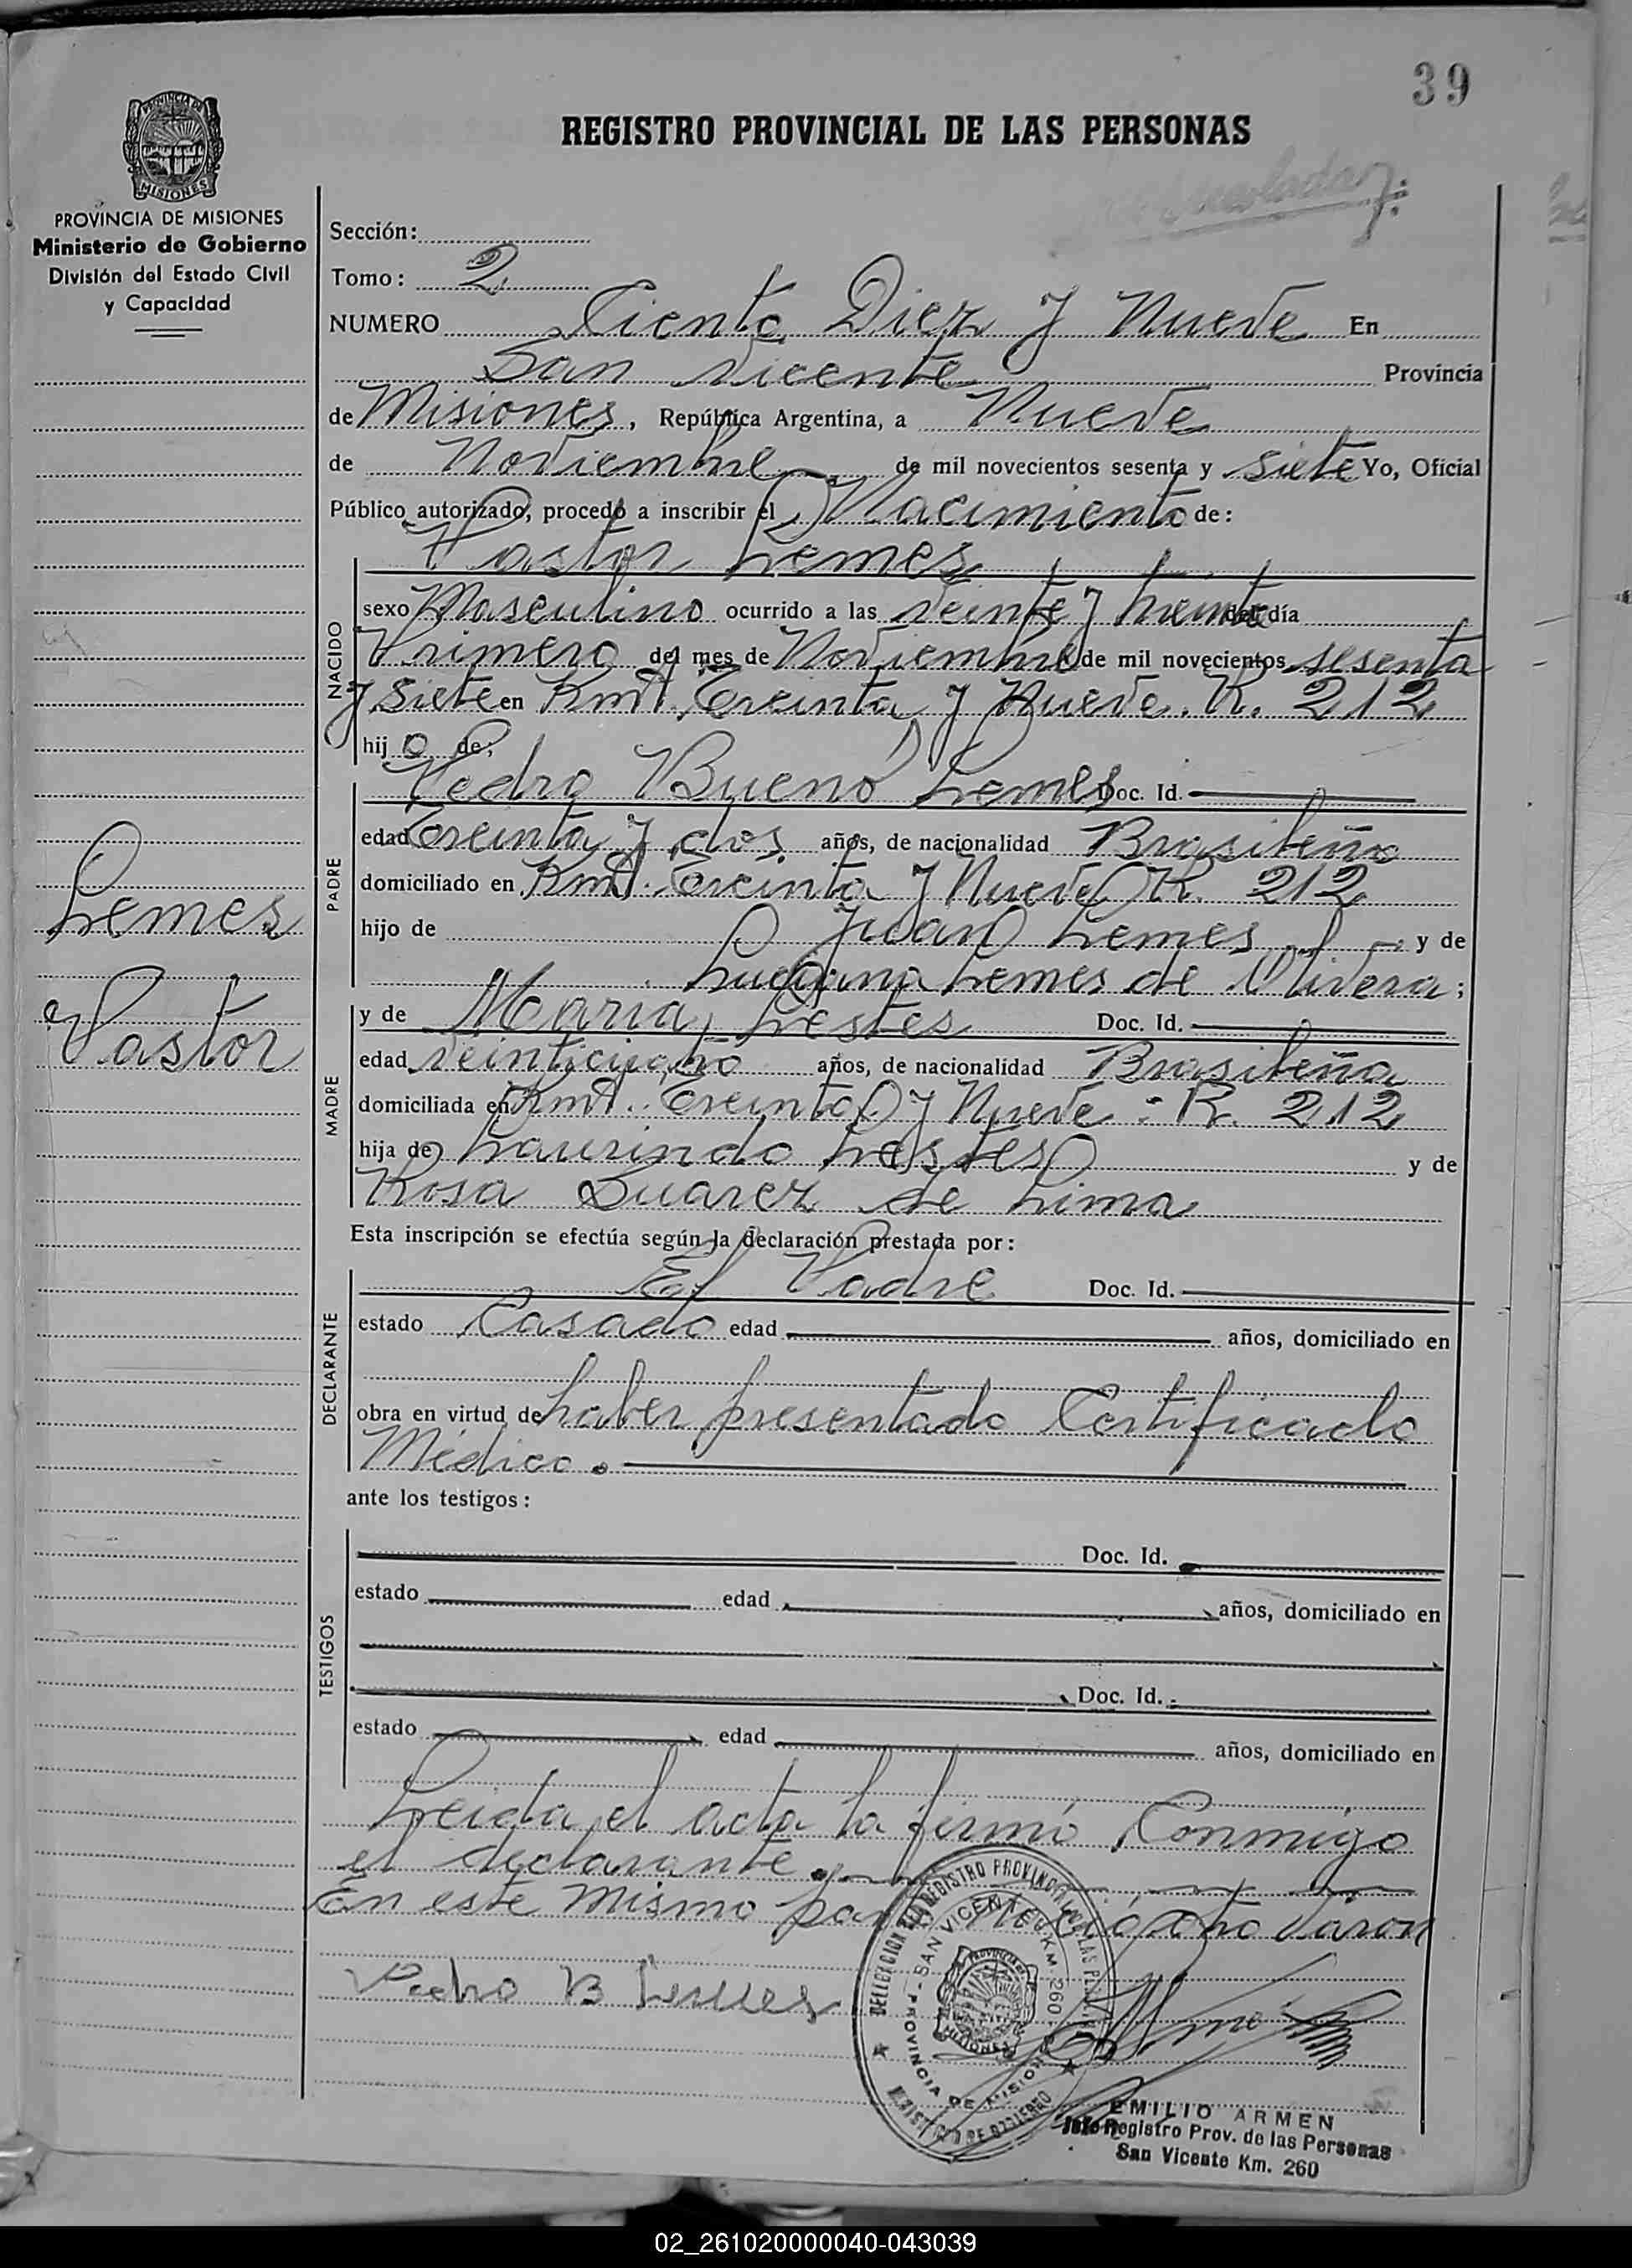 39
REGISTRO PROVINCIAL DE LAS PERSONAS
PROVINCIA DE MISIONES
Ministerio de Gobierno
División del Estado Civil
y Capacidad
Lemes
Pastor
Sección:
Tomo: 2
NUMERO Ciento Diez y Nueve En
San Vicente Provincia
de Misiones, República Argentina, a Nueve
de Noviembre de mil novecientos sesenta y siete Yo, Oficial
Público autorizado, procedo a inscribir el Nacimiento de:
Pastor Lemes
NACIDO
sexo Masculino ocurrido a las veinte y treinta del día
Primero del mes de Noviembre de mil novecientos sesenta
y siete en Kmt. Treinta y Nueve. R. 212
hijo de:
PADRE
Pedro Bueno Lemes Doc. Id.
edad Treinta y dos años, de nacionalidad Brasileño
domiciliado en Kmt. Treinta y Nueve R. 212
hijo de Juan Lemes y de
Luciana Lemes de Olivera;
MADRE
y de Maria Doc. Id.
edad veinticuatro años, de nacionalidad Brasileña
domiciliada en Kmt. Treinta y Nueve - R. 212
hija de Laurindo y de
Rosa Suarez de Lima
Esta inscripción se efectúa según la declaración prestada por:
DECLARANTE
El Padre Doc. Id.
estado Casado edad años, domiciliado en
obra en virtud de haber presentado Certificado
Médico.
ante los testigos:
TESTIGOS
Doc. Id.
estado edad años, domiciliado en
Doc. Id.
estado edad años, domiciliado en
Leida el acta la firmó Conmigo
el declarante.
En este mismo parto nació otro varon
Pedro B Lemes
DELEGACION DEL REGISTRO PROVINCIAL DE LAS PERSONAS
SAN VICENTE - KM. 260
PROVINCIA DE MISIONES
MINISTERIO DE GOBIERNO
EMILIO ARMEN
Jefe Registro Prov. de las Personas
San Vicente Km. 260
02_261020000040-043039